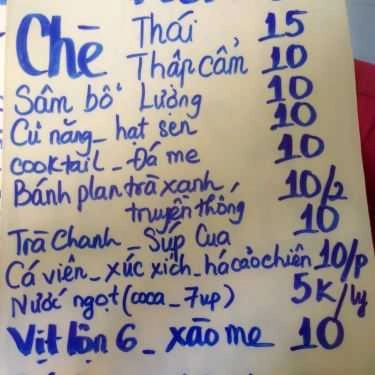 Chè Thái 15
Thập cẩm 10
Sâm bổ Lượng 10
Củ năng_ hạt sen 10
cooktail_Đá me 10
Bánh plan trà xanh, 10/2
truyền thống
Trà Chanh _ Súp Cua 10
Cá viên_ xúc xích_ há cảo chiên 10/p
Nước ngọt (coca_7up) 5K/ly
Vịt lộn 6_ xào me 10